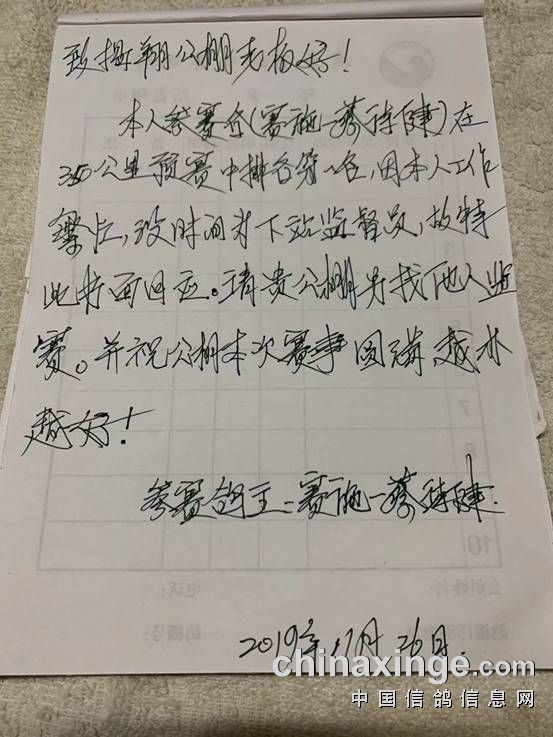 致揭翔公棚老板好!
本人参赛名(赛鸽—蔡待健)在
350公里预赛中排名第1名,因本人工作
繁忙,没时间为下站监督员,故特
此书面回函。请贵公棚另找他人监
赛。并祝公棚本次赛事圆满,越办
越好!
参赛鸽主:
2019年.11月26日.
chinaxinge.com
中国信鸽信息网
10
7
电话: